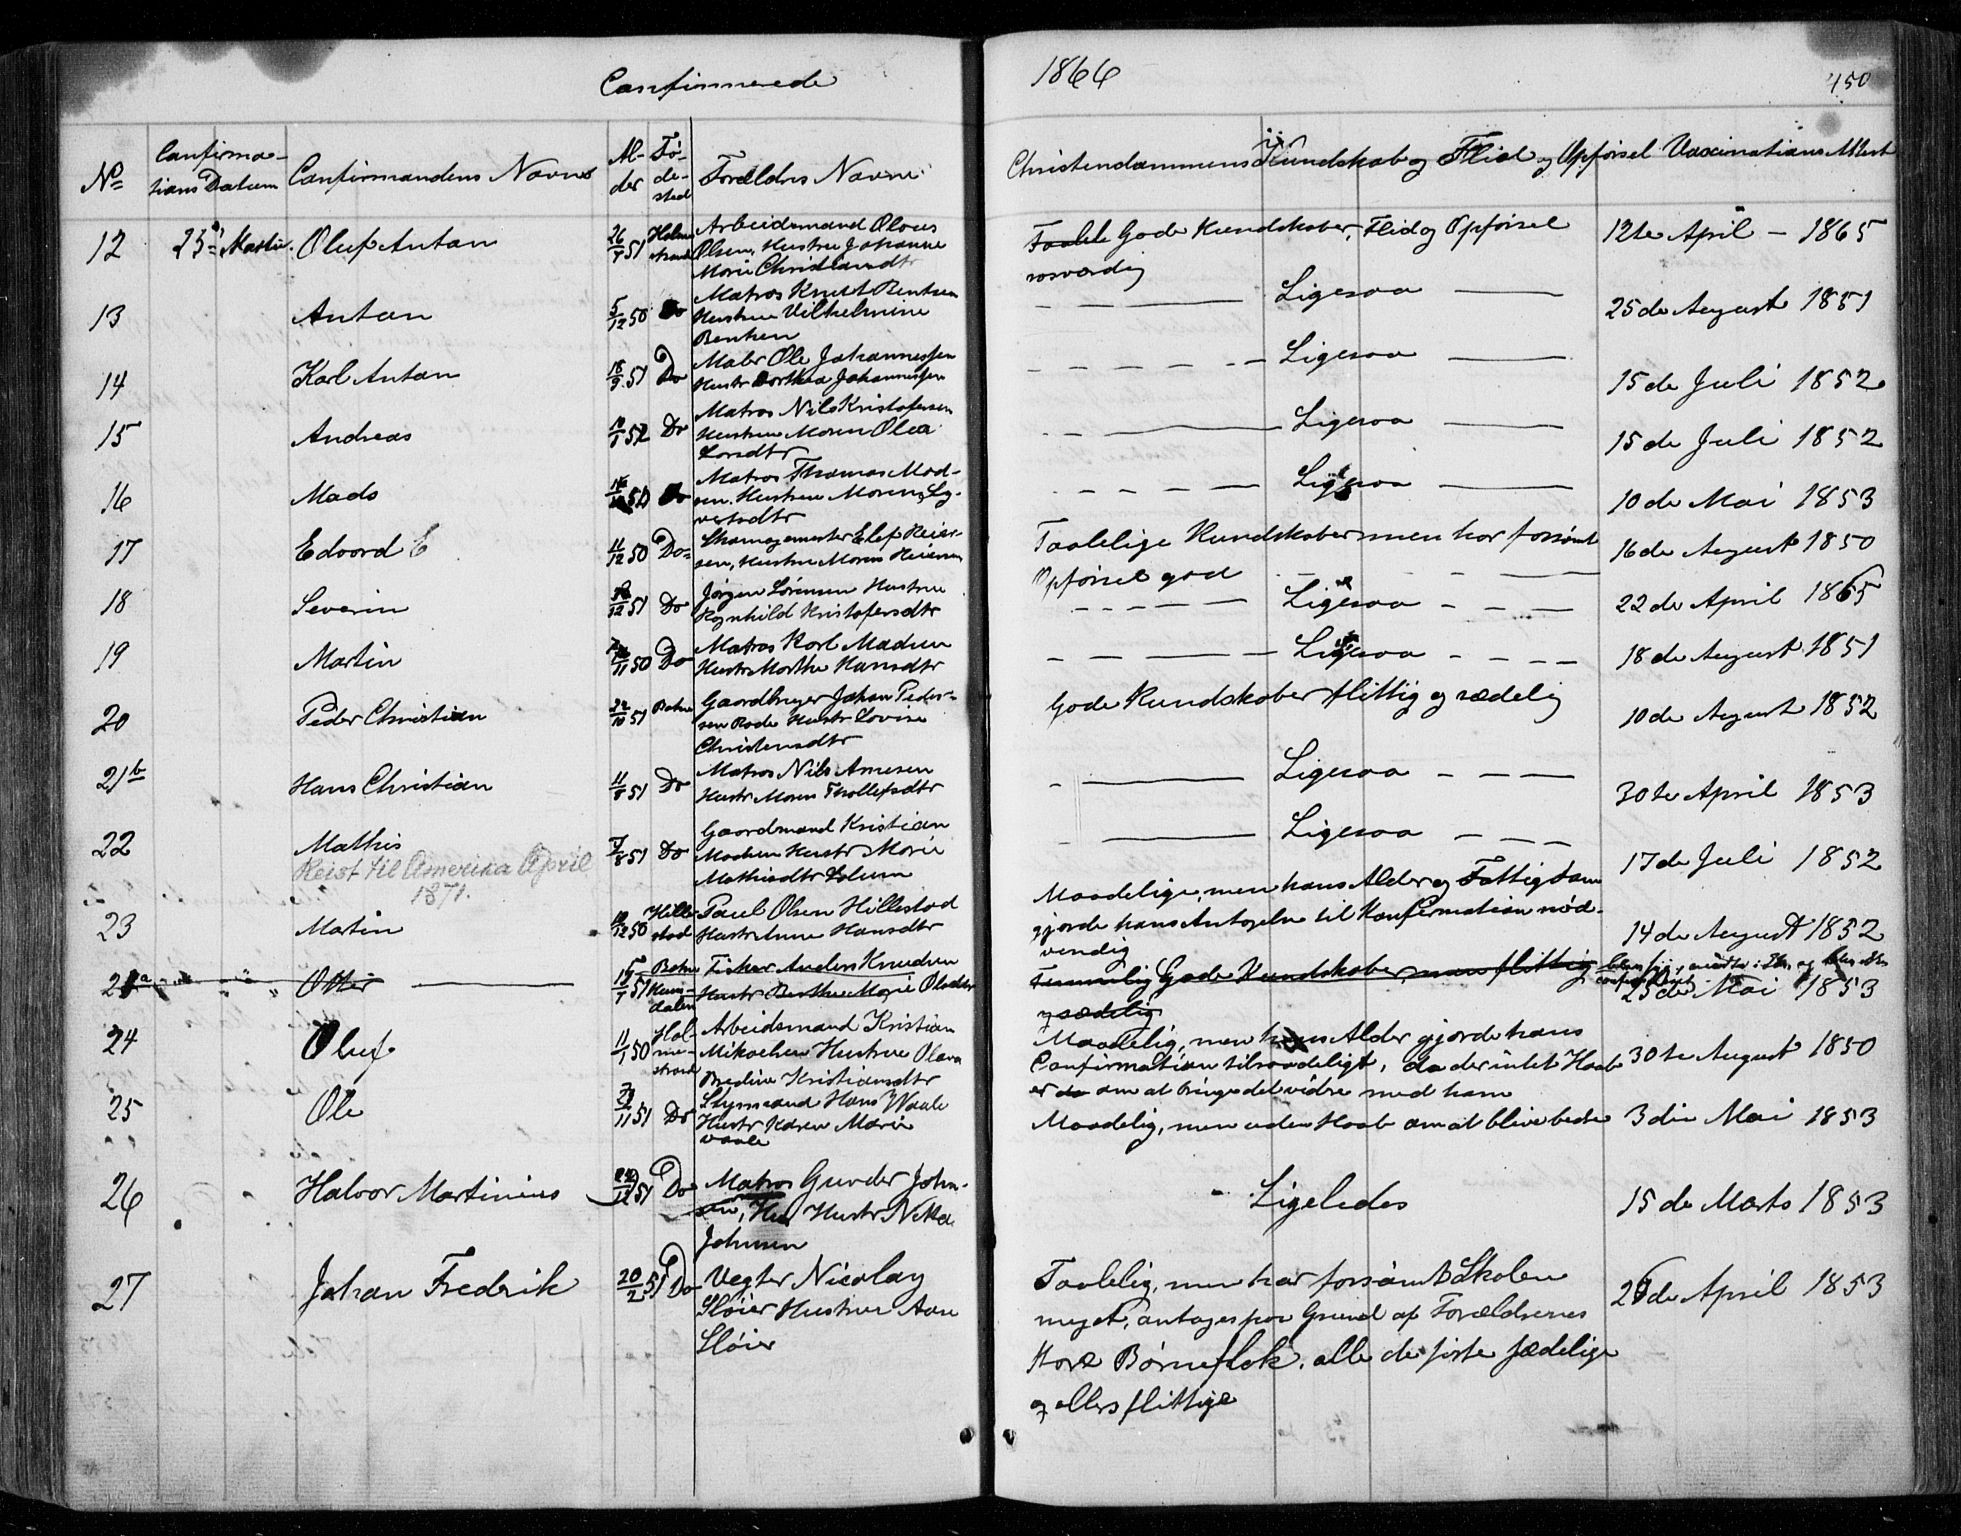 Confirmerede
1866
450
No
Confirma-
tions Datum
Confirmandens Navne
Al-
der
Fø-
de-
sted
Foreldres Navne
Christendommens Kundskab og Flid og Opførsel
Vaccinations Attest
12 25 Marti. Oluf Anton 26/7 51 Holme
strand
Arbeidsmand Olous
Olsen, Hustru Johanne
Marie Christiansdtr
Taalele Gode Kundskaber, Flid og Opførsel
rosværdig
12te April - 1865
13 Anton 5/12 50 Do
Matros Knut Bentsen
Hustru Vilhelmine
Bentsen
Ligesaa
25de August 1851
14 Karl Anton 18/9 51 Do
Maler Ole Johannessen
Hustr Dorthea Johannessen
Ligesaa
15de Juli 1852
15 Andreas 10/1 52 Do
Matros Nils Kristofersen
Hustru Maren Olea
Larsdtr
Ligesaa
15de Juli 1852
16 Mads 51 Do
Matros Thomas Mad-
sen. Hustru Maren Sy-
vertsdtr
Ligesaa
10de Mai 1853
17 Edvard E 11/12 50 Do
Skomagermester Elef Reier-
sen, Hustru Maren Reiersen
Taalelige Kundskaber men har forsømt
Opførsel god
16de August 1850
18 Severin /12 51 Do
Jørgen Sørensen Hustru
Ragnhild Kristofersdtr
Ligesaa
22de April 1865
19 Martin /11 50 Do
Matros Karl Madsen
Hustr Marthe Hansdtr
Ligesaa
18de August 1851
20 Peder Christian 22/10 51 Botne
Gaardbruger Johan Peder-
sen Rode Hustr Lovise
Christensdtr
Gode Kundskaber flittig og sædelig
10de August 1852
21b Hans Christian 11/8 51 Do
Matros Nils Arnesen
Hustr Maren Thollefsdtr
Ligesaa
30te April 1853
22 Mathis 7/8 51 Do
Reist til Amerika April
1871.
Gaardmand Kristian
Madsen Hustr Marie
Mathisdtr
Ligesaa
17de Juli 1852
23 Martin 10/12 50 Hille
stad
Paul Olsen Hillestad
Hustr Anne Hansdtr
Maadelige, men hans Alder og Fattigdom
gjorde hans Antagelse til Konfirmation nød-
vendig
14de August 1852
21a Otter 15/1 51 Botne
Fisker Anders Knudsen
Hustr Berthe Marie Olsdtr
Temmelig Gode Kundskaber, men flittig
og sædelig
25de Mai 1853
24 Oluf 11/1 50 Hol-
me-
strand
Arbeidsmand Kristian
Mikaelsen Hustru Olava
Bredine Kristiansdtr
Maadelig, men hans Alder gjorde hans
Confirmation tilraadeligt, da der intet Haab
er da om at bringe det vidre med ham
30te August 1850
25 Ole /11 51 Do
Styrmand Hans Waale
Hustr Karen Marie
Waale
Maadelig, men uden Haab om at blive bedre
3die Mai 1853
26 Halvor Martinius 22/12 51 Do
Matros Gunder John-
sen, Hustr Nikka
Johnsen
Ligeledes
15de Marts 1853
27 Johan Fredrik 20/2 51 Do
Vegter Nicolay
Sløier Hustrue Ane
Sløier
Taalelig, men har forsømt Skolen
meget, antages paa Grund af Forældrenes
store Børneflok. alle de siste sædelige
og ellers flittige
de April 1853